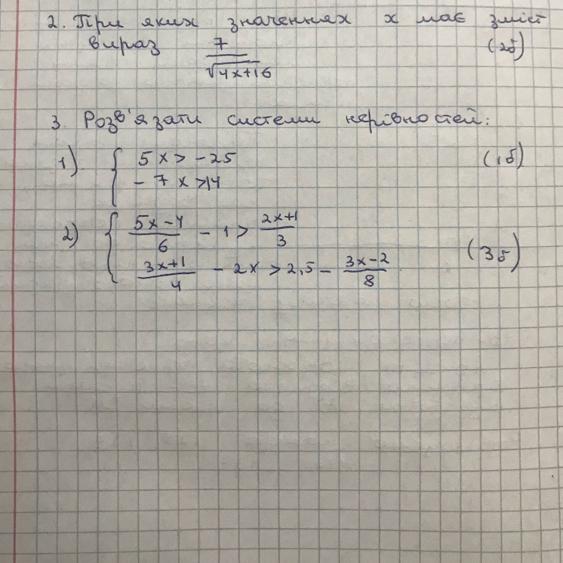 2. При яких значеннях x має зміст
вираз 7/√4x+16 (2б)
3. Розв'язати системи нерівностей:
1) { 5x > -25 (1б)
- 7x > 14
2) { 5x-4/6 - 1 > 2x+1/3 (3б)
3x+1/4 - 2x > 2,5 - 3x-2/8